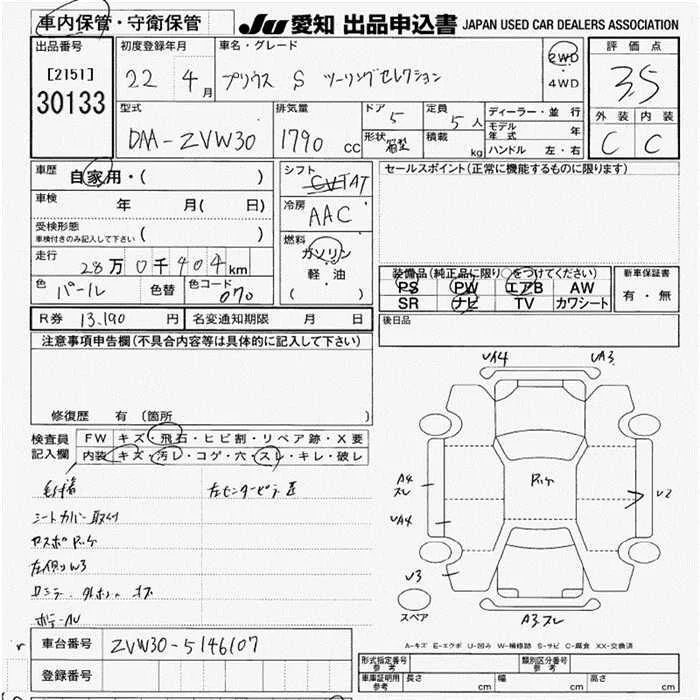 車内保管・守衛保管 JU 愛知 出品申込書 JAPAN USED CAR DEALERS ASSOCIATION
出品番号 初度登録年月 車名・グレード 2WD 評価点
[2151] 22 4月 プリウス S ツーリングセレクション 4WD 3.5
30133 型式 排気量 ドア 定員 ディーラー・並行 外装 内装
DAA-ZVW30 1790 cc 5 5人 モデル年式 年 C C
形状 箱型 積載 kg ハンドル 左・右
車歴 自家用・( ) シフト CVT AT セールスポイント(正常に機能するものに限ります)
車検 年 月( 日) 冷房 AAC
受検形態 ( )
車検付きのみ記入して下さい
燃料 ガソリン
走行 28万0千404km 軽・油 装備品(純正品に限り○をつけてください) 新車保証書
色 パール 色替 色コード 070 ( ) PS PW エアB AW 有・無
SR ナビ TV カワシート
R券 13,190 円 名変通知期限 月 日 後日品
注意事項申告欄(不具合内容等は具体的に記入して下さい)
修復歴 有 (箇所 )
UA4 UA3
検査員記入欄 FW キズ・飛石・ヒビ割・リペア跡・X要
内装 キズ・汚レ・コゲ・穴・スレ・キレ・破レ
A4 スレ
シートカバー取付
UA4
U2
U3
スペア
A3 スレ
車台番号 ZVW30-5146107
A-キズ E-エクボ U-凹み W-補修跡 S-サビ C-腐食 XX-交換済
登録番号 形式指定番号 参考 類別区分番号 参考
車庫証明用 参考 長さ cm 幅 cm 高さ cm